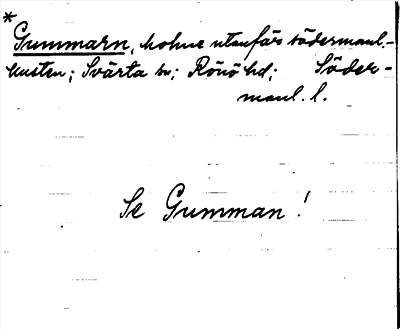 *
Gummarn, holme utanför södermanl.-
kusten; Svärta sn; Rönö hd; Söder-
manl. l.
Se Gumman!